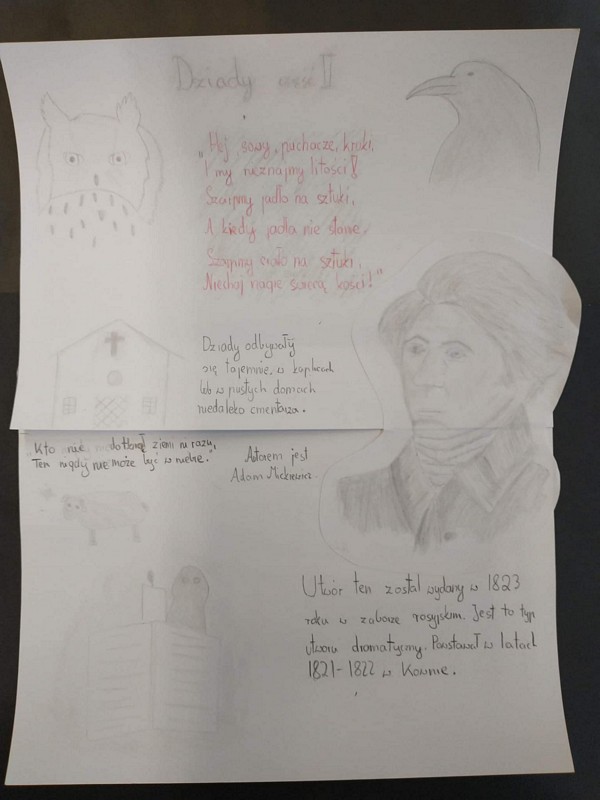 Dziady część II
„Hej sowy, puchacze, kruki,
I my nieznajmy litości!
Szarpmy jadło na sztuki,
A kiedy jadła nie stanie,
Szarpmy ciało na sztuki,
Niechaj nagie świecą kości!"
Dziady odbywały
się tajemnie, w kaplicach
lub w pustych domach
niedaleko cmentarza.
„Kto nie dotknął ziemi ni razu,
Ten nigdy nie może być w niebie."
Autorem jest
Adam Mickiewicz
Utwór ten został wydany w 1823
roku w zaborze rosyjskim. Jest to typ
utworu dramatyczny. Powstawał w latach
1821-1822 w Kownie.